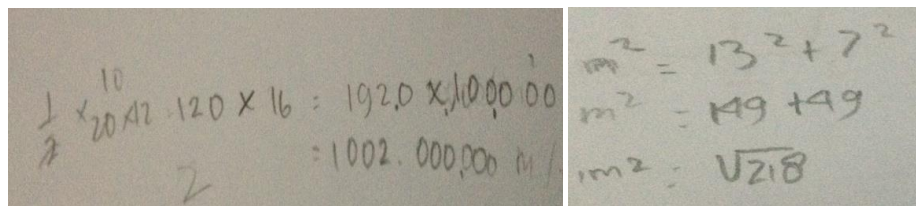 10
1/2 × 20×12 = 120 × 16 = 192.0 × 10000.00
= 1002.000.000 m
2
m² = 13² + 7²
m² = 149 + 49
m² = √218